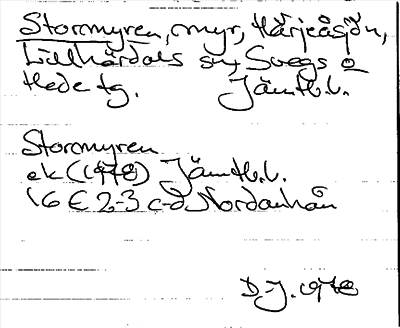 Stormyren, myr, Härjeåsjön,
Lillhärdals sn, Svegs o
Hede tg. Jämtl.l.
Stormyren
ek (1978) Jämtl.l.
16 E 2-3 c-d Nordanhån
D.J. 1978